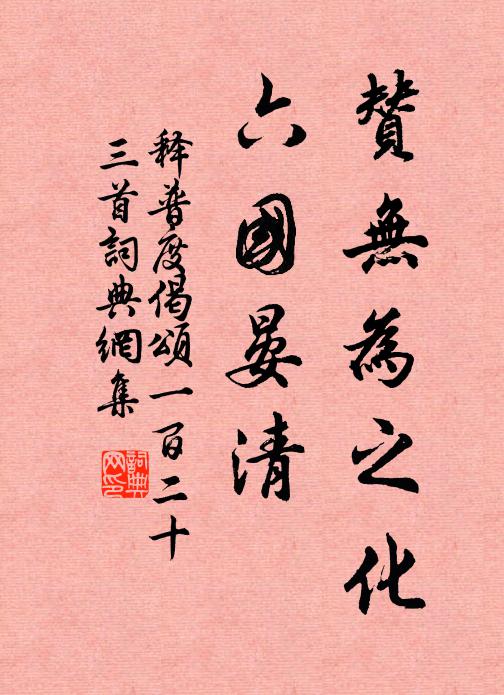 贊無為之化
六國晏清
释普度偈頌一百二十
三首詞典網集
詞典
网印